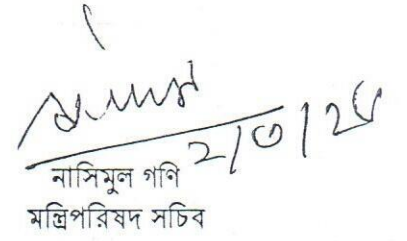 ২/৩/২৬
নাসিমুল গণি
মন্ত্রিপরিষদ সচিব